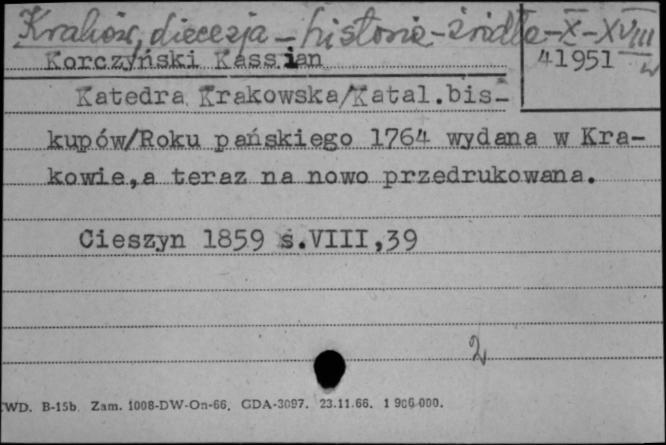 Kraków, diecezja - historia - źródła - X - XVIII w
Korczyński Kassian
41951
Katedra Krakowska/Katal.bis-
kupów/Roku pańskiego 1764 wydana w Kra-
kowie,a teraz na nowo przedrukowana.
Cieszyn 1859 s.VIII,39
2
WD. B-15b. Zam. 1008-DW-On-66. GDA-3097. 23.11.66. 1 906 000.